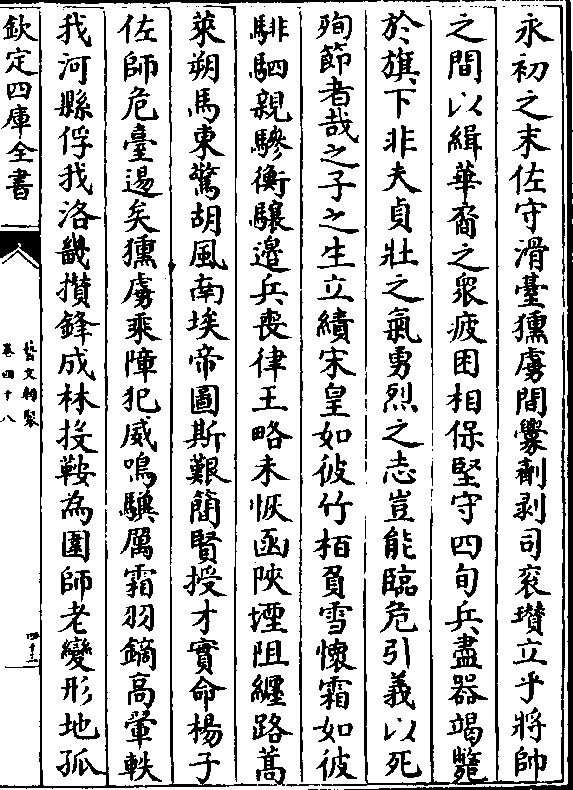 永初之末佐守滑臺獯虜間釁劘剥司兖瓚立乎將帥
之間以緝華裔之衆疲困相保堅守四旬兵盡器竭斃
於旗下非夫貞壯之氣勇烈之志豈能臨危引義以死
殉節者哉之子之生立績宋皇如彼竹栢負雪懷霜如彼
騑駟親驂衡驤邉兵喪律王略未恢函陜堙阻纒路蒿
萊朔馬東騖胡風南埃帝圖斯艱簡賢授才實命楊子
佐師危臺遏矣獯虜乘障犯威鳴驥厲霜羽鏑高翬軼
我河縣俘我洛畿攅鋒成林投鞍為圍師老變形地孤
欽定四庫全書
藝文類聚
卷四十八
四十三